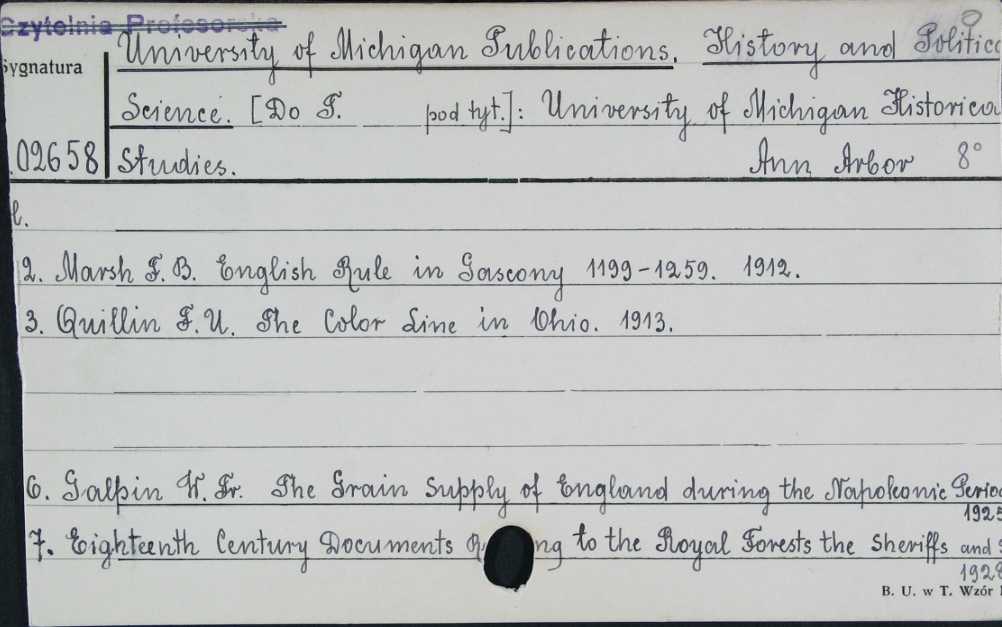 Czytelnia Profesorska
University of Michigan Publications. History and Politica
Sygnatura
Science. [Do T. pod tyt.]: University of Michigan Historica
02658 Studies. Ann Arbor 8°
1.
2. Marsh F. B. English Rule in Gascony 1199-1259. 1912.
3. Quillin F. U. The Color Line in Ohio. 1913.
6. Galpin W. Fr. The Grain Supply of England during the Napoleonic Period
1925
7. Eighteenth Century Documents ng to the Royal Forests the Sheriffs and
1928
B. U. w T. Wzór